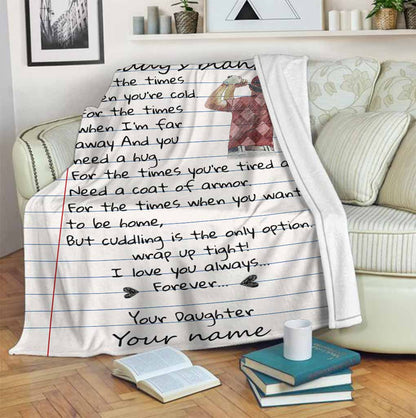 the times
you're cold.
for the times
when I'm far
away And you
need a hug
For the times you're tired a
Need a coat of armor.
For the times when you want
to be home,
But cuddling is the only option.
wrap up tight!
I love you always...
Forever...
Your Daughter
Your name